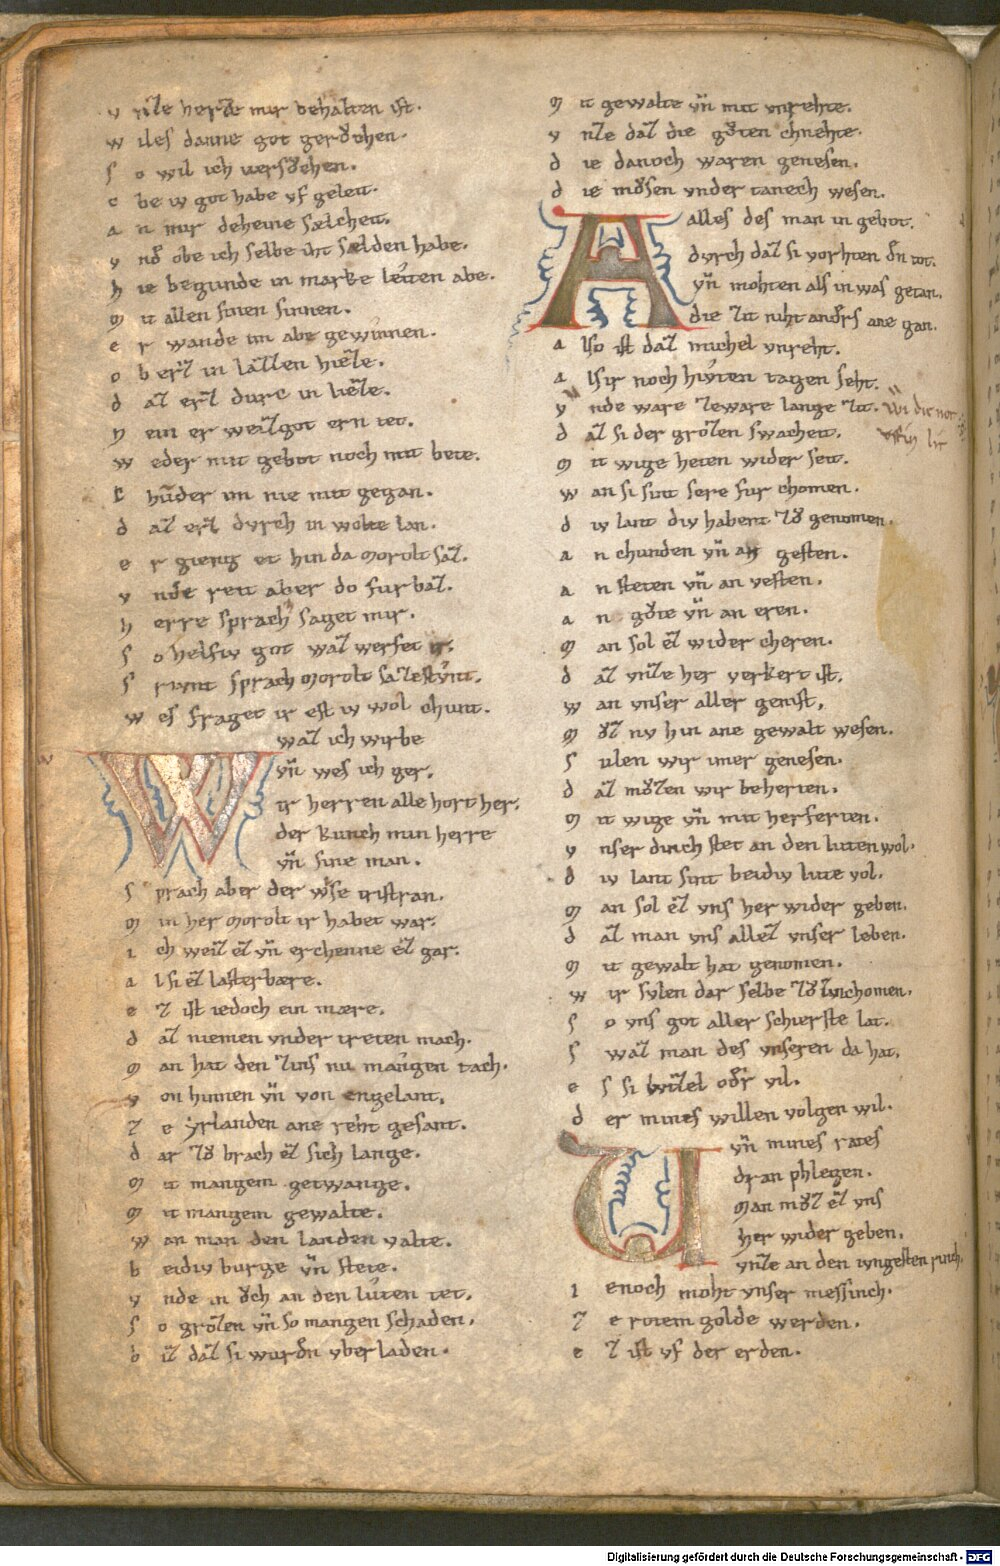 v nze herze mir behalten ist.
w iles danne got gerůchen.
s o wil ich versůchen.
c be iv got habe vf geleit.
a n mir deheine sælcheit.
v nd obe ich selbe iht sælden habe.
h ie begunde in marke leiten abe.
m it allen sinen sinnen.
e r wande im abe gewinnen.
o b erz in lazzen hieze.
d az erz durc in lieze.
n ein er weizgot ern tet.
w eder mit gebot noch mit bete.
c hunder im nie mit gegan.
d az erz dvrch in wolte lan.
e r gieng et hin da morolt saz.
v nde reit aber do furbaz.
h erre sprach saget mir.
s o helfiv got waz werfet ir.
s riunt sprach morolt tristant.
w es fraget ir est iv wol chunt.
waz ich wirbe
vn̄ wes ich ger.
ir herren alle hort her.
der kunich min herre
vn̄ sine man.
s prach aber der wise tristran.
m in her morolt ir habet war.
i ch weiz ez vn̄ erchenne ez gar.
a l si ez lasterbære.
e z ist iedoch ein mære.
d az niemen vnder treten mach.
m an hat den zins nu mangen tach.
v on hinnen vn̄ von engelant.
z e yrlanden ane reht gesant.
d ar zů brach ez sich lange.
m it mangem getwange.
m it mangem gewalte.
w an man den landen valte.
b eidiv burge vn̄ stete.
v nde in ǒch an den luten tet.
s o grozen vn̄ so mangen schaden.
b iz daz si wurdn vberladen.
m it gewalte vn̄ mit vnrehte.
v nze daz die gůten chnehte.
d ie danoch waren genesen.
d ie můsen vnder tanech wesen.
A alles des man in gebot.
dvrch daz si vorhten dn tot.
vn̄ mohten als in was getan.
die zit niht anders ane gan.
a lso ist daz michel vnreht.
a lsir noch hivten tagen seht.
v nde ware zeware lange zit.
d az si der grozen swacheit.
m it wige heten wider seit.
w an si sint sere fur chomen.
d iv lant div habent zů genomen.
a n chunden vn̄ an gesten.
a n steten vn̄ an vesten.
a n gůte vn̄ an eren.
m an sol ez wider cheren.
d az vnze her verkert ist.
w an vnser aller genist.
m ůz nv hin ane gewalt wesen.
s ulen wir imer genesen.
d az můzen wir beherten.
m it wige vn̄ mit herferten.
v nser dinch stet an den luten wol.
d iv lant sint beidiv lute vol.
m an sol ez vns her wider geben.
d az man vns allez vnser leben.
m it gewalt hat genomen.
w ir svlen dar selbe zů zin chomen.
s o vns got aller schierste lat.
s waz man des vnseren da hat.
e s si lvzel oder vil.
d er mines willen volgen wil.
U vn̄ mines rates
dran phlegen.
man můz ez vns
her wider geben.
vnze an den ivngesten rinch.
i enoch moht vnser messinch.
z e rotem golde werden.
e z ist vf der erden.
Digitalisierung gefördert durch die Deutsche Forschungsgemeinschaft - DFG